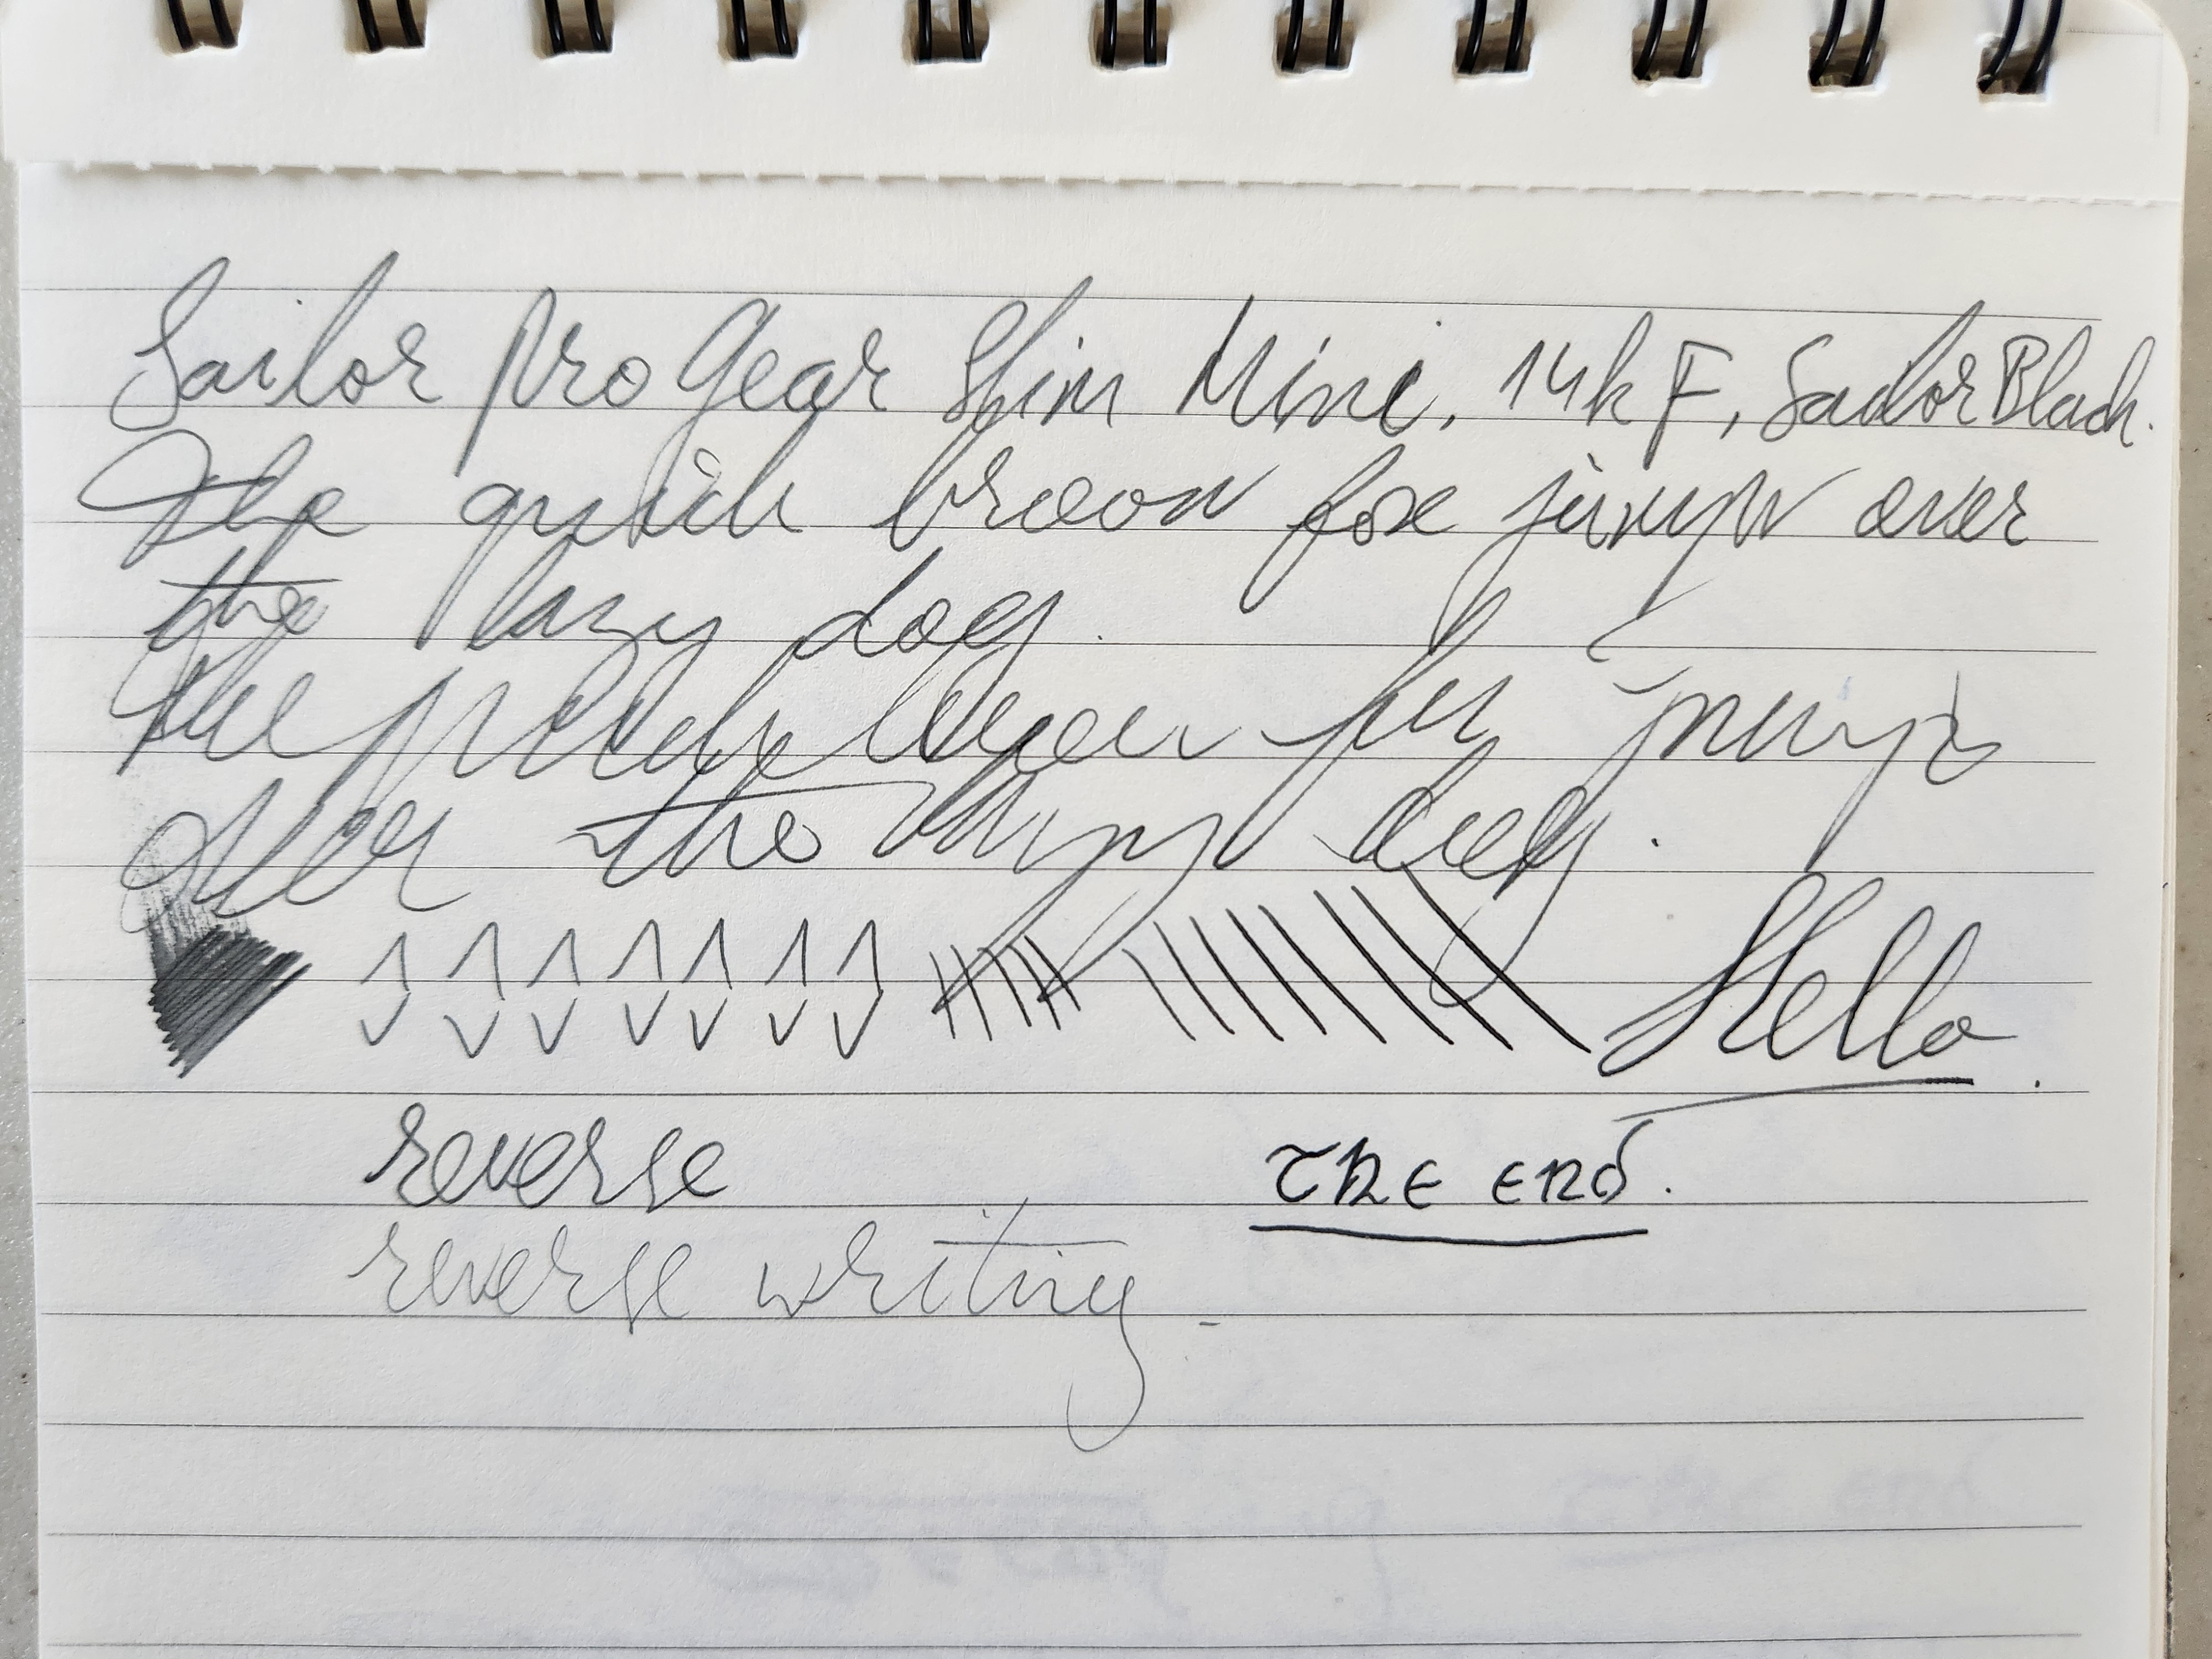 Sailor Pro Gear Slim Mini. 14k F, Sailor Black.
The quick brown fox jumps over
the lazy dog.
The quick brown fox jumps
over the lazy dog.
Hello.
reverse The end.
reverse writing.